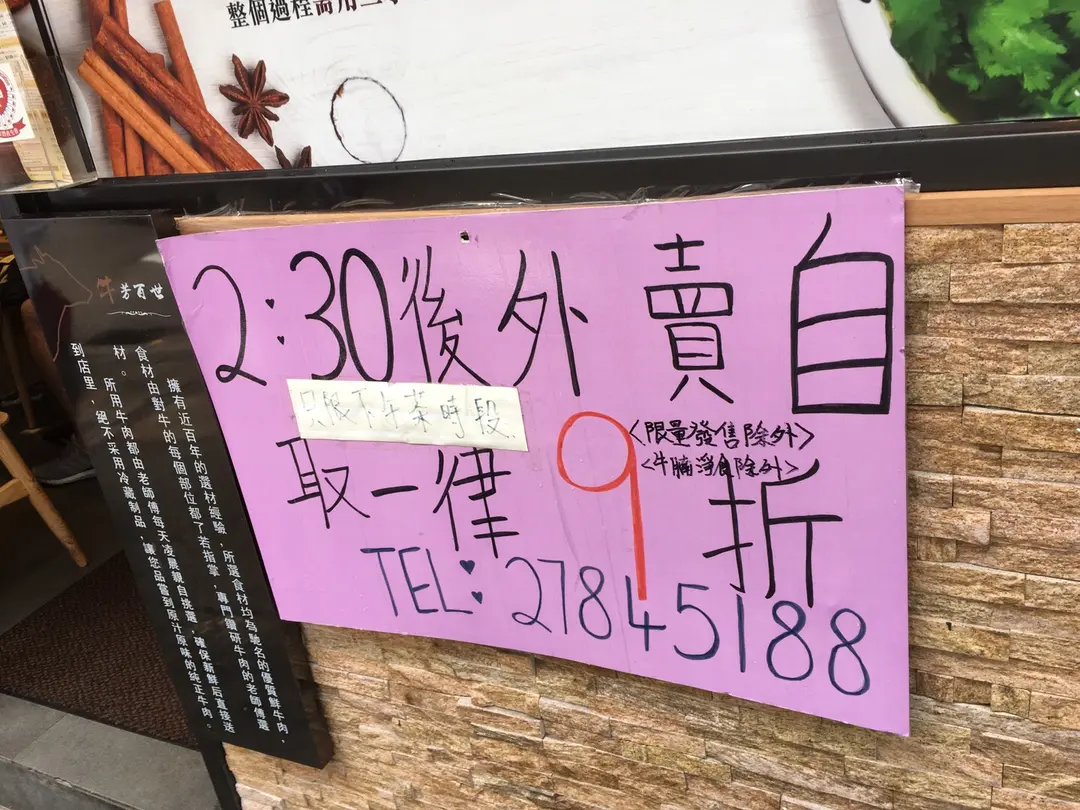 整個過程需用
2:30後外賣自
只限下午茶時段
取一律9折
<限量發售除外>
<牛腩淨食除外>
TEL: 27845188
牛芳百世
擁有近百年的選材經驗，所選食材均為馳名的優質鮮牛肉，
食材由對牛的每個部位都了若指掌，專門鑽研牛肉的老師傅選
材。所用牛肉都由老師傅每天凌晨親自挑選，確保新鮮后直接送
到店里，絕不采用冷藏制品，讓您品嘗到原汁原味的純正牛肉。